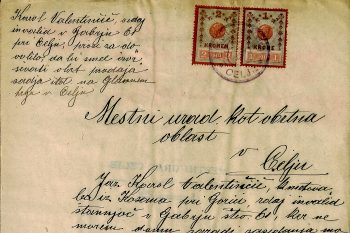 Karol Valentinčič, sedaj
invalid v Gaberju 61
pri Celju, prosi za do-
volitev, da bi smel izvr-
ševati obrt prodaja
sadja itd. na Glavnem
trgu v Celju
2
KRONEN
1
KRONE
CELJE
Mestni urad kot obrtna
oblast
v
Celju
Jaz Karol Valentinčič,
iz Kozana pri Gorici, sedaj invalid
stanujoč v Gaberju štev. 61, ker ne
morem